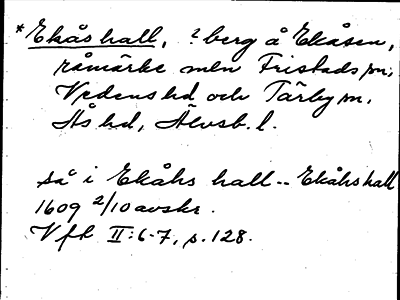 *Ekås hall, ? berg å Ekåsen,
råmärke mln Fristads sn,
Vedens hd och Tärby sn,
Ås hd, Älvsb. l.
så i Ekåhs hall -- Ekåhs hall
1609 2/10 avskr.
Vfk II:6-7, s. 128.